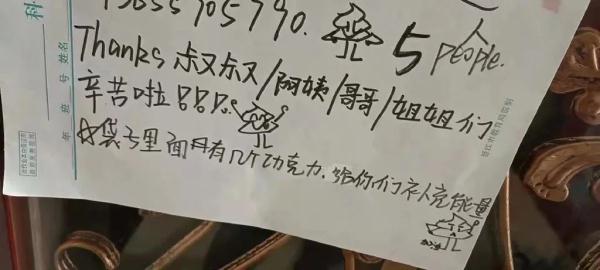 13655705790. 5 人 people.
Thanks 叔叔/阿姨/哥哥/姐姐们
辛苦啦!!!
袋子里面有几个巧克力,给你们补充能量
科
年 班 号 姓名